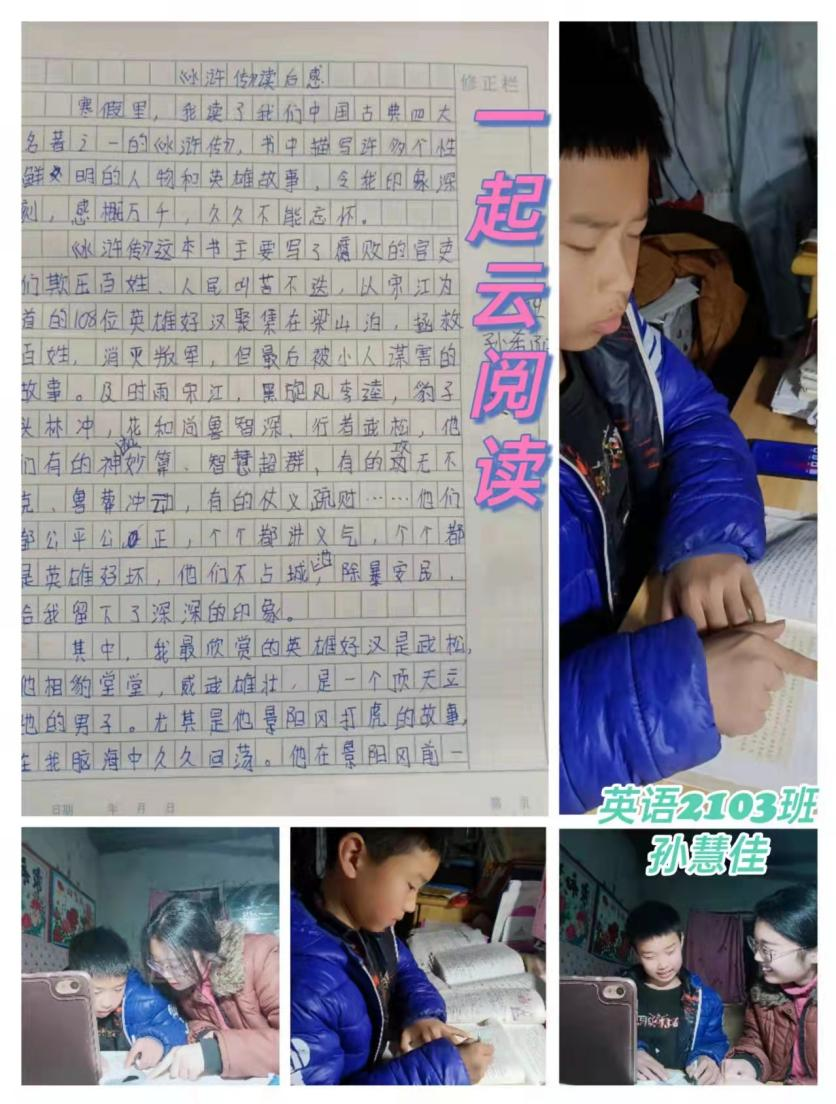 《水浒传》读后感
修正栏
寒假里，我读了我们中国古典四大
名著之一的《水浒传》，书中描写许多个性
鲜明的人物和英雄故事，令我印象深
刻，感概万千，久久不能忘怀。
《水浒传》这本书主要写了腐败的官吏
们欺压百姓、人民叫苦不迭，以宋江为
首的108位英雄好汉聚集在梁山泊，拯救
百姓，消灭叛军，但最后被小人谋害的
故事。及时雨宋江，黑旋风李逵，豹子
头林冲，花和尚鲁智深、行者武松，他
们有的神妙算、智慧超群，有的攻无不
克、鲁莽冲动，有的仗义疏财……他们
都公平公正，个个都讲义气，个个都
是英雄好坏，他们不占城池，除暴安民，
给我留下了深深的印象。
其中，我最欣赏的英雄好汉是武松，
他相豹堂堂，威武雄壮，是一个顶天立
地的男子。尤其是他景阳冈打虎的故事，
在我脑海中久久回荡。他在景阳冈前一
日期 年 月 日
第 页
一起云阅读
英语2103班
孙慧佳